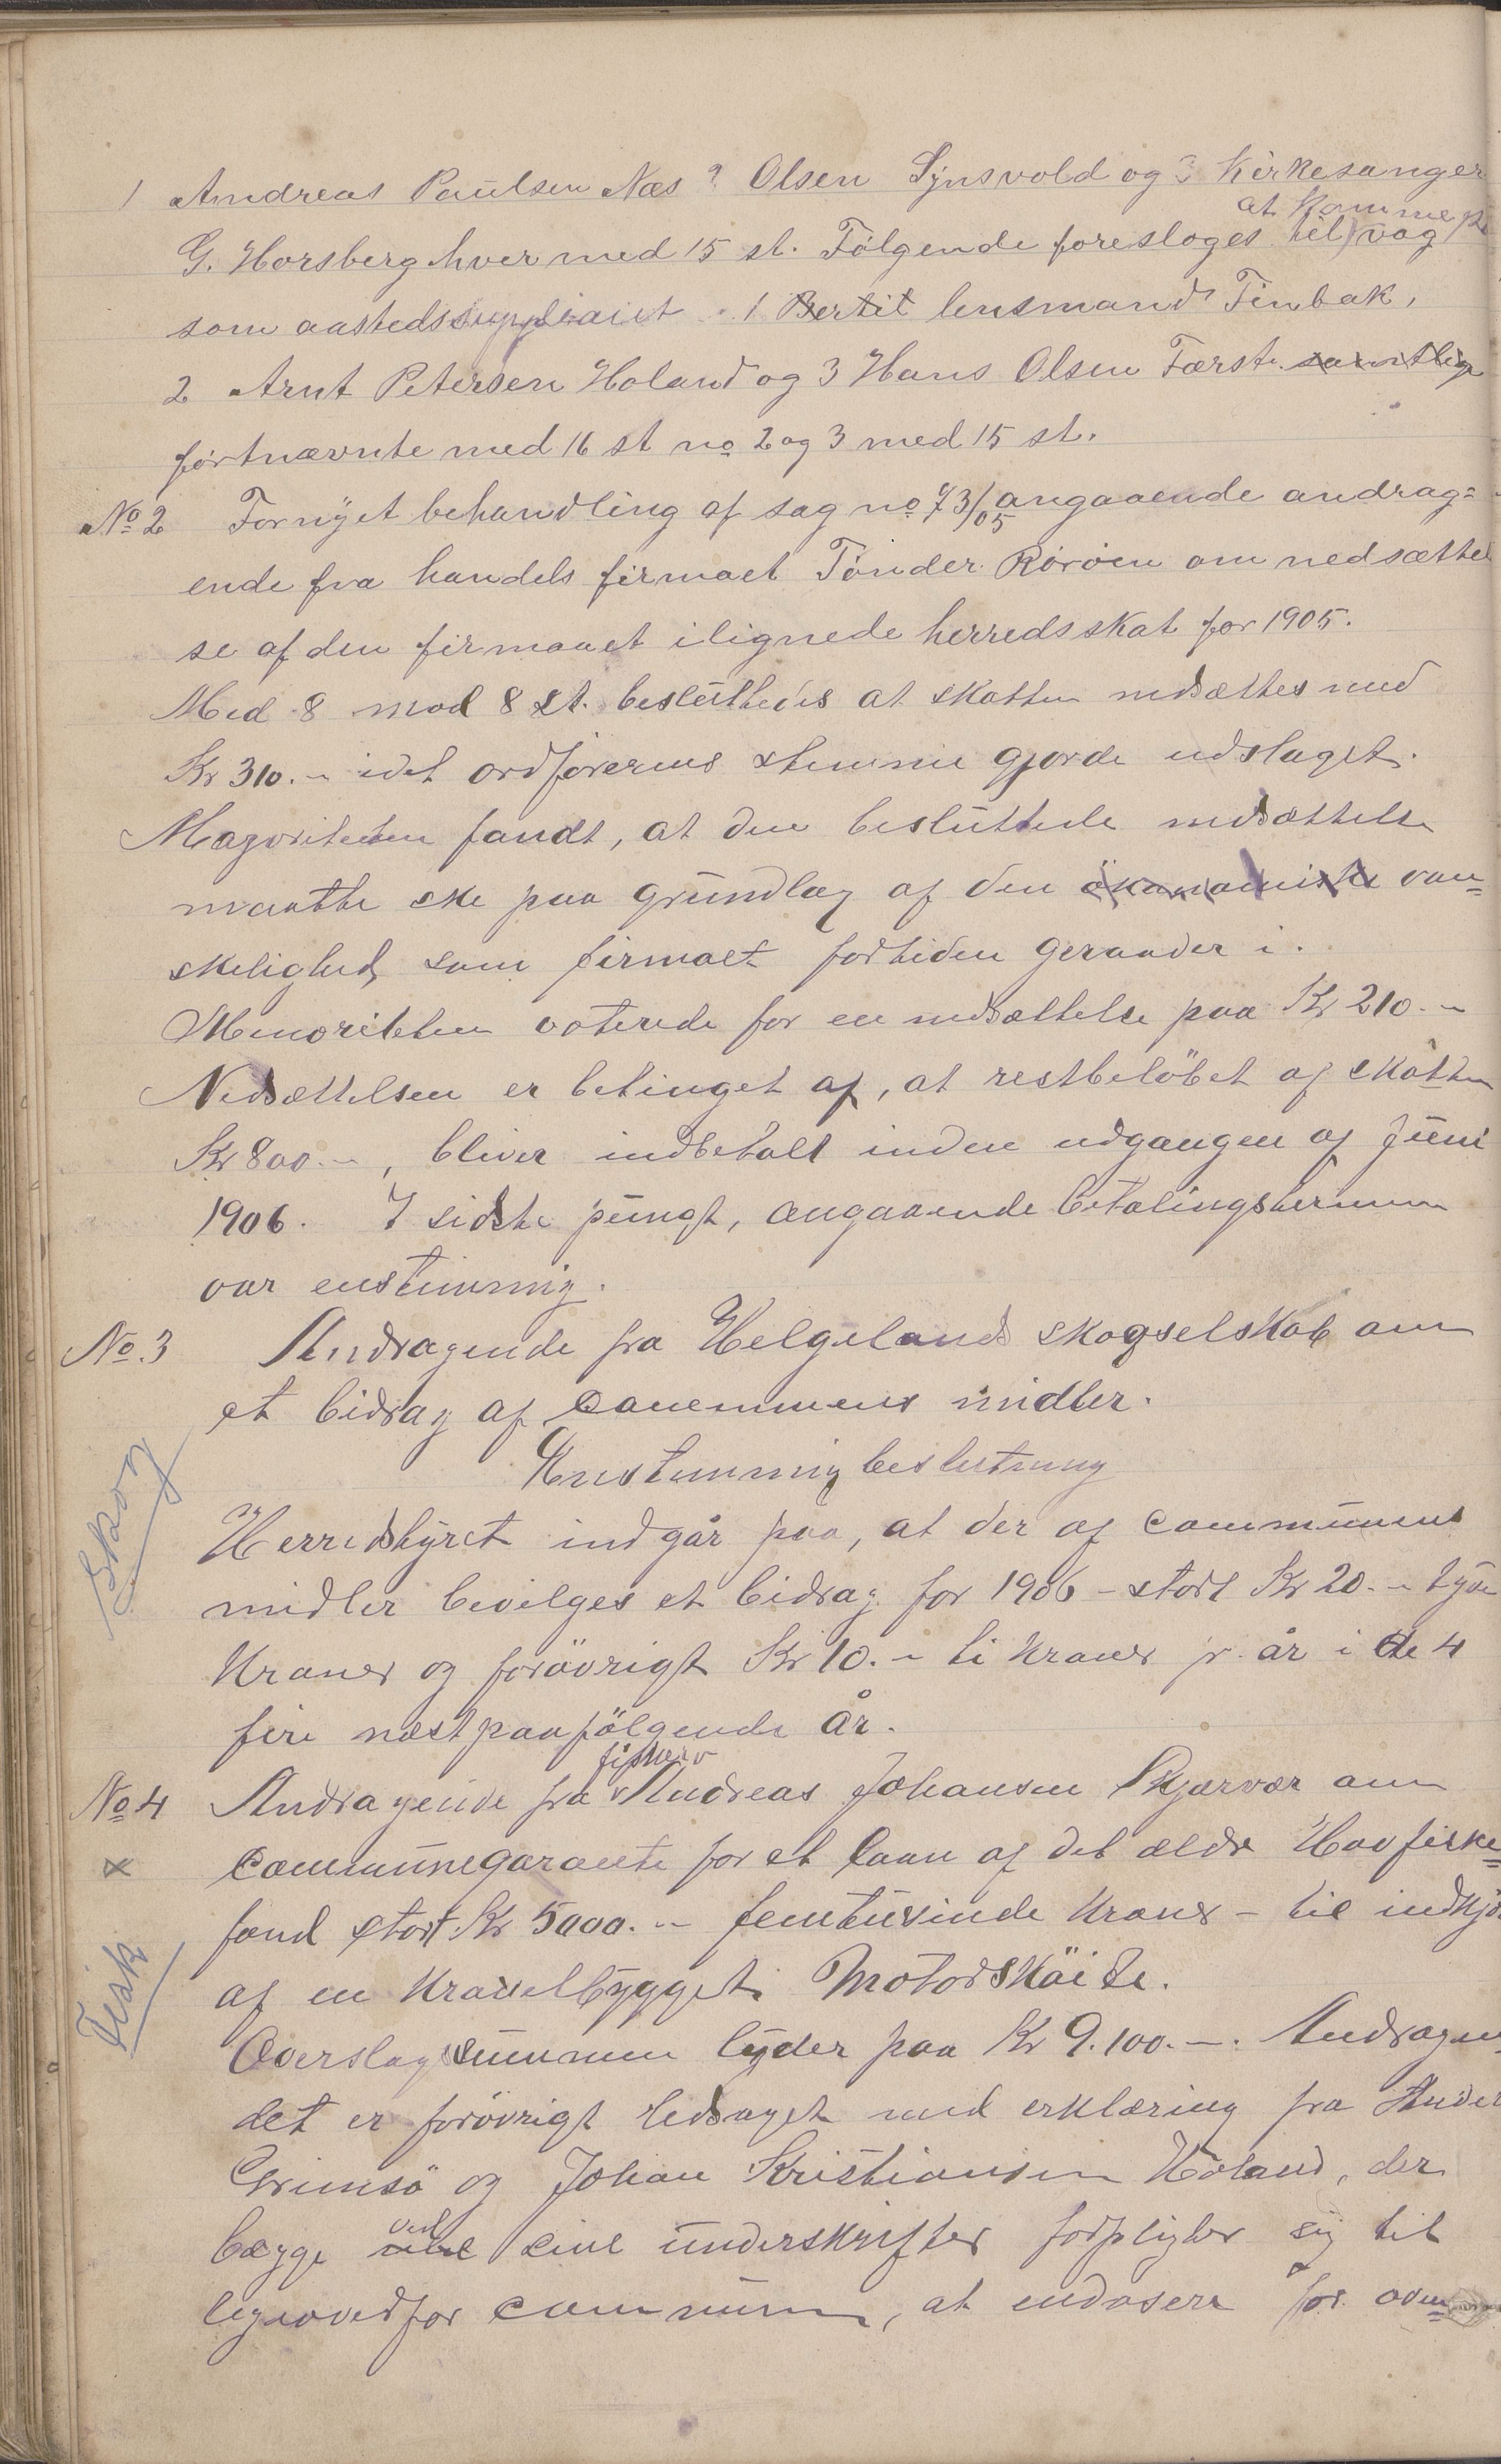 1 Andreas Paulsen Næs 2 Olsen Synsvold og 3 Kirkesanger
at komme paa
G. Horsberg hver med 15 st. Følgende foresloges til valg
som aastedssuppleant. 1 Bertil lensmand Finbak,
2 Arnt Petersen Holand og 3 Hans Olsen Færst. samtlige
førtnævnte med 16 st no 2 og 3 med 15 st.
No 2 Fornyet behandling af sag no 73/05 angaaende andrag=
ende fra handels firmaet Tønder Rørøen om nedsættel
se af den firmaet ilignede herredsskat for 1905.
Med 8 mod 8 st. besluttedes at skatten nedsættes med
Kr 310.- idet ordførerens stemme gjorde udslaget.
Majoriteten fandt, at den besluttede nedsættelse
maatte ske paa grundlag af den økonomiske van=
skelighed, som firmaet fortiden geraader i.
Minoriteten voterede for en nedsættelse paa Kr 210.-
Nedsættelsen er betinget af, at restbeløbet af skatten
Kr 800.-, bliver indbetalt inden udgangen af Juni
1906. I sidste pungt, angaaende betalingsterminen
var enstimmig.
No. 3 Andragende fra Helgelands skogselskab om
et bidrag af communens midler.
Enstimmig beslutning
Skog
Herredstyret indgår paa, at der af communens
midler bevilges et bidrag for 1906 - stort Kr 20.- tyve
Kroner og forøvrigt Kr 10.- ti kroner pr. år i de 4
fire næstpaafølgende år.
fisker
No 4 Andragende fra Andreas Johansen Skjærvær om
communegarante for et laan af det ældre Havfiske=
fond stort Kr 5000.- femtusinde kroner - til indkjø
Fisk
af en kravelbygget Motorskøite.
Overslagssummen lyder paa Kr 9.100.-. Andragen
det er forøvrigt ledsaget med erklæring fra Ander
Grimsø og Johan Kristiansen Høland, der
ved
begge sine underskrifter forpligter sig til
ligeoverfor communen, at endosere for oven=